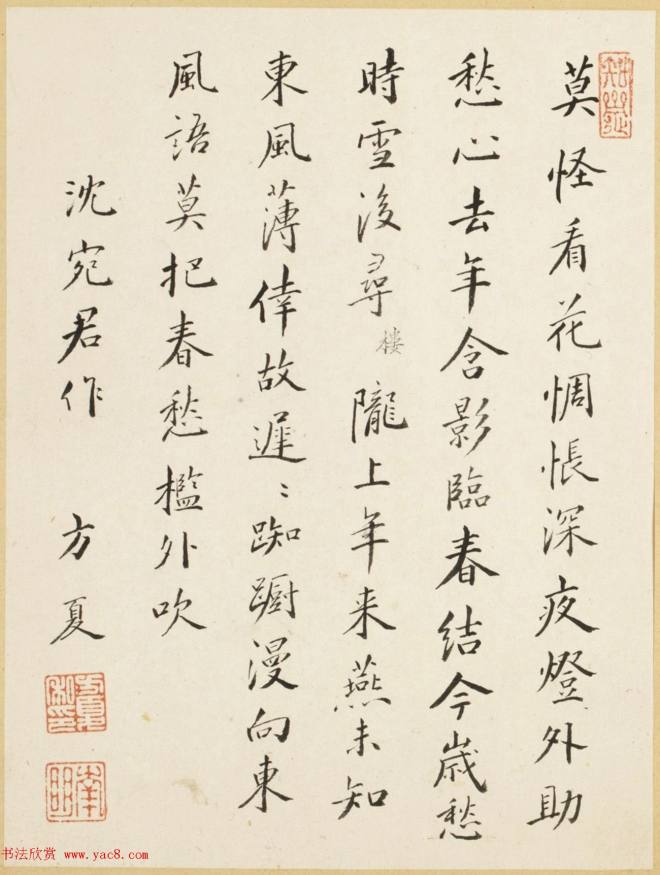 莫怪看花惆悵深夜燈外助
愁心去年含影臨春結今歲愁
時雪後尋樓隴上年来燕未知
東風薄倖故遲〻踟蹰漫向東
風語莫把春愁檻外吹
沈宛君作 方夏
书法欣赏 www.yac8.com